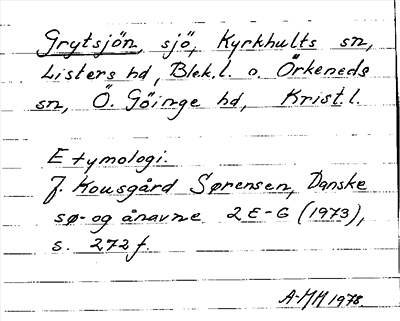 Grytsjön, sjö, Kyrkhults sn,
Listers hd, Blek.l. o. Örkeneds
sn, Ö. Göinge hd, Krist.l.
Etymologi.
J. Kousgård Sørensen, Danske
sø- og ånavne 2 E-G (1973),
s. 272 f.
A-MH 1978.